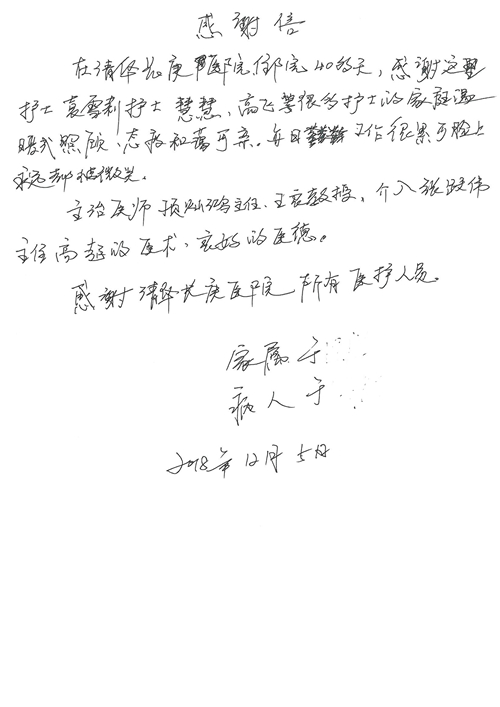 感谢信
在清华长庚医院住院40多天，感谢这里
护士 雪莉护士 慧慧，高飞等很多护士的家庭温
暖式照顾，态度和蔼可亲。每日工作很累可脸上
永远都 微笑。
主治医师 主任、王 教授，介入张 伟
主任高 的医术，良好的医德。
感谢清华长庚医院所有医护人员。
家属 于
病人 于
2018年12月5日